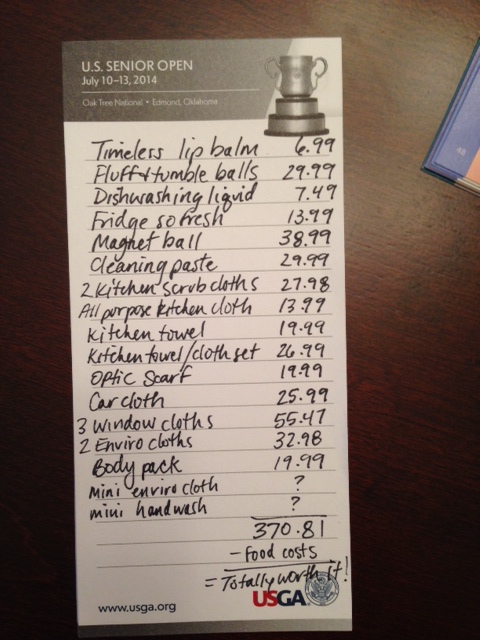 U.S. SENIOR OPEN
July 10–13, 2014
Oak Tree National • Edmond, Oklahoma
Timeless lip balm 6.99
Fluff & tumble balls 29.99
Dishwashing liquid 7.49
Fridge so fresh 13.99
Magnet ball 38.99
Cleaning paste 29.99
2 Kitchen scrub cloths 27.98
All purpose kitchen cloth 13.99
Kitchen towel 19.99
Kitchen towel/cloth set 26.99
Optic Scarf 19.99
Car cloth 25.99
3 Window cloths 55.47
2 Enviro cloths 32.98
Body pack 19.99
mini enviro cloth ?
mini handwash ?
370.81
- food costs
= Totally worth it!
www.usga.org USGA
48